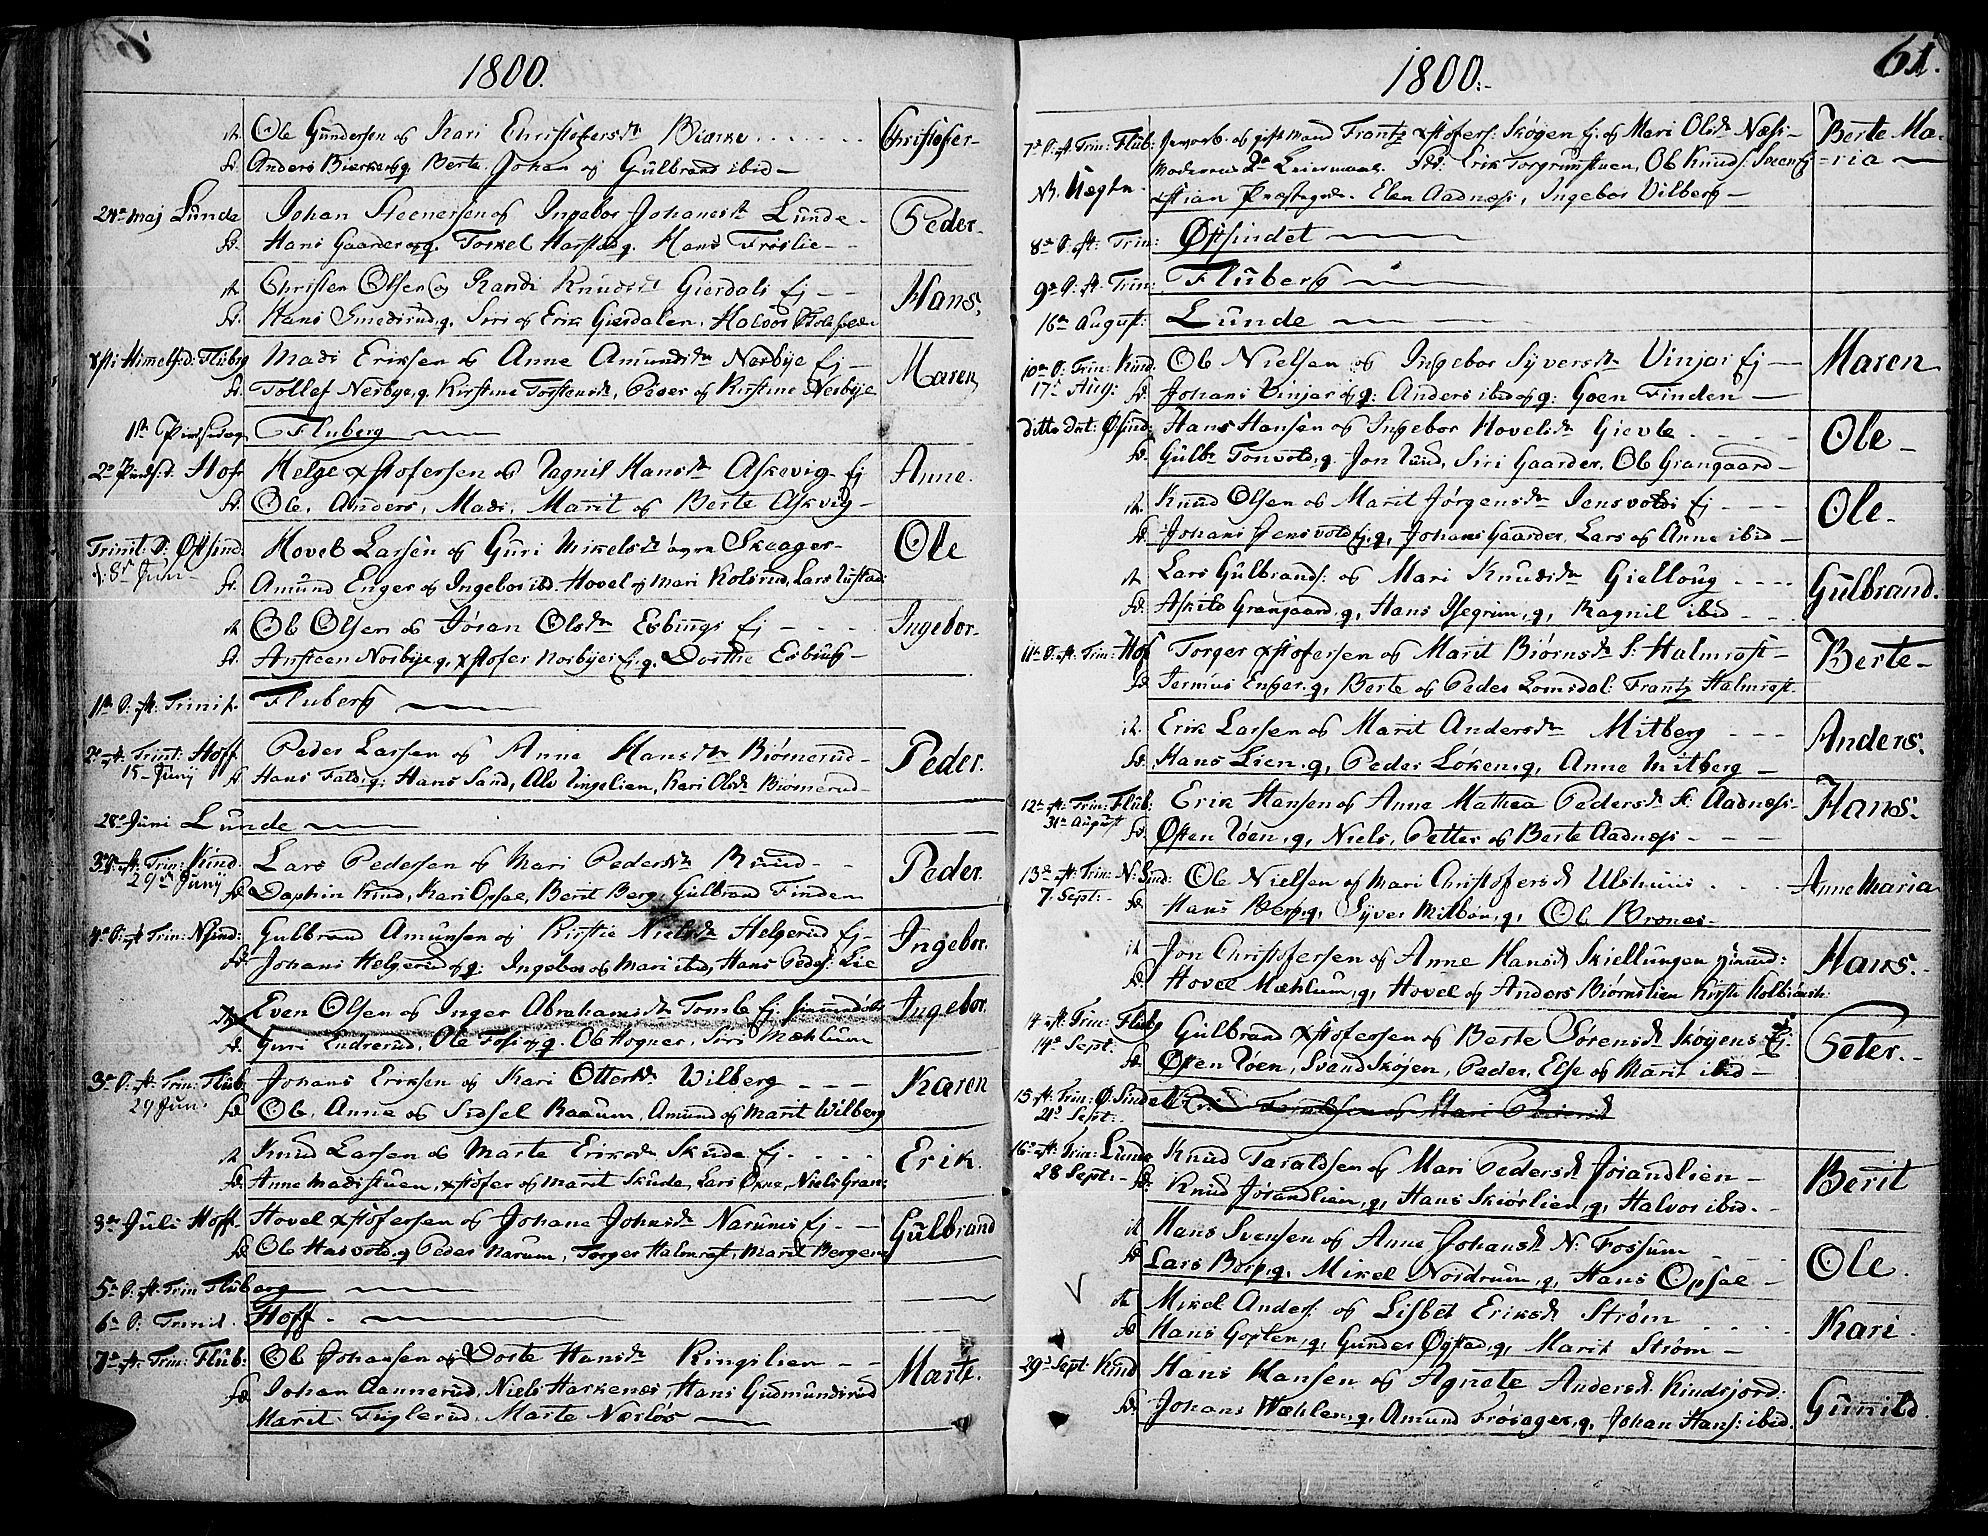 1800.
it. Ole Gundersen og Kari Christofersdr Biørke Christofer
fd. Anders Bierke og q. Berte. Johan og Gulbrand ibid
24de Maj Lunde Johan Steenersen og Ingebor Johansdr Lunde Peder.
fd. Hans Gaarder og q. Torkel Harstad q. Hans Frøslie
it. Christen Olsen og Randi Knudsdr Gierdals Ej Hans.
fd. Hans Smedsrud, q. Siri og Erik Gierdalen, Halvor
Xsti Himelfsd: Flubrg Mads Eriksen og Anne Amundsdr Nerbye Ej Maren
fd. Tollef Nerbye, q. Kirstine Torstensdr, Peder og Kirstine Nerbye
1ste Pindsedag Fluberg
2den Pindsd. Hof Helge Xstofersen og Ragnil Hansdr Askevig Ej Anne.
fd. Ole, Anders, Mads, Marit og Berte Askvig
Trinit: S: Østsind. Hovel Larsen og Guri Mikelsdr Skaager Ole
d. 8de Jun fd. Amund Enger og Ingebor ibd. Hovel og Mari Kolsrud, Lars
it. Ole Olsen og Jøran Olsdr Esbings Ej Ingebor
fd. Ansteen Norbye, q, Xstofer Norbyes Ej, q, Dorthe Esbing
1ste S. ft. Trinit. Fluberg
2den ft. Trint: Hoff Peder Larsen og Anne Hansdr Biørnerud Peder.
15 Junij fd Hans Fald, q: Hans Sand, Ole Lingelien, Kari Olsdr Biørnerud
28de Juni Lunde
3die S. ft. Trin: Kind Lars Pedersen og Mari Pedersdr Peder.
29de Junij fd. Daphin Kind, Kari Opsae, Berit Berg, Gulbrand Finden
4de S: ft Trin: Nsind: Gulbrand Amunsen og Kirstie Nielsdr Helgerud Ej Ingebor.
fd. Johans Helgerud og q: Ingebor og Mari ibid, Hans Peders: Lie
it. Even Olsen og Inger Abrahamsdr Tomle Ej. Ingebor.
fd. Guri Endrerud, Ole Foss og q. Ole Hogner, Siri Mæhlum
3die S. ft. Trin: Flub Johans Eriksen og Kari Ottersdr Wilberg Karen
29 Jun. fd. Ole, Anne og Sidsel Raaum, Amund og Marit Wilberg
it. Knud Larsen og Marte Eriksdr Skude Ej. Erik.
fd. Anne Madsstuen, Xstofer og Marit Skude, Lars Øvne, Niels Gran:
3de Juli Hoff Hovel Xstofersen og Johane Johnsdr Narums Ej Gulbrand
fd. Ole Hasvold, q Peder Narum, Torger Halmrast, Marit Bergene
5te S. ft. Trin Fluberg
6te S: Trinit. Hoff.
7de ft. Trin: Flub: Ole Johansen og Dorte Hansdr Ringelien Marte.
fd. Johan Aannerud, Niels Harkenes, Hans Gudmundsrud
Marit Fuglerud, Marte Nærløs
1800. 61.
7de S. ft. Trin: Flub: gift Mand Frantz Xstofers: Skøyen Ej. og Mari Olsdr Næss Berte Maria
Moderens 2de Leiermaal. fdd: Erik Torgrimstuen, Ole Knuds: Sveen Ej
N. Uægte. Xstian Præstegrd. Elen Aadnæss, Ingebor Vilberg
8de S. ft. Trin: Østsindet
9de S. ft. Trin: Fluberg
16de August: Lunde
10de S. Trin: Kind. Ole Nielsen og Ingebor Syversdr Vinjar Ej Maren
17de Aug: fd. Johans Vinjar og q: Anders ibid og q: Goen Finden
ditto dat: Øsind: Hans Hansen og Ingebor Hovelsdr Gievle Ole
fd. Gulbr Tonvold, q. Jon Lund, Siri Gaarder, Ole Grangaard
it. Knud Olsen og Marit Jørgensdr Jensvolds Ej Ole
fd. Johans Jensvold Ej, q, Johans Gaarder, Lars og Anne ibid
it. Lars Gulbrands: og Mari Knudsdr Gielloug Gulbrand.
fd. Askild Grangaard, q, Hans Isegrim, q, Ragnil ibid
11te S. ft. Trin: Hof Torger Xstofersen og Marit Biørnsdr S: Halmrast Berte
fd. Jermius Enger, q, Berte og Peder Lomsdal: Frantz Halmrast.
it. Erik Larsen og Marit Andersdr Mitberg Anders.
fd. Hans Lien, q, Peder Løken, q, Anne Mitberg
12te ft. Trin: Flub: Erik Hansen og Anne Mathea Pedersdr S: Aadnæss Hans.
31te August fd. Østen Roen, q, Niels, Petter og Berte Aadnæss
13de ft. Trin: N: Sind: Ole Nielsen og Mari Christofersd Ulshuus Anne Maria
7. Sept: fd. Hans Berg, q, Syver Milbon, q, Ole Brones
it. Jon Christofersen og Anne Hansd Skiellungen Hans.
fd. Hovel Mæhlum, q, Hovel og Anders Biørnslien Kirsti
14. ft. Trin: Flubg Gulbrand Xstofersen og Berte Sørensd Skøyens Ej. Peter.
14de Sept: fd. Østen Roen, Svand Skøjen, Peder, Else og Marit ibid
15. ft. Trin: Ø. Sindet
21de Sept:
16de ft. Trin: Lunde Knud Taraldsen og Mari Pedersd Jørandlien Berit
28 Sept: fd. Knud Jørandlien, q, Hans Skiørlien, q, Halvor ibid.
it Hans Svensen og Anne Johansd N: Fossum Ole.
fd. Lars Berg, q, Mikel Nordrum, q, Hans Opsae
it. Mikel Anders: og Lisbet Eriksd Strøm Kari
fd. Hans Goplen, q, Gunder Øystad, q, Marit Strøm
29de Sept: Kind Hans Hansen og Agnete Andersd Kindsjord: Gunild
fd. Johans Wæhlen, q, Amund Frøsager, q, Johan Hans: ibid.